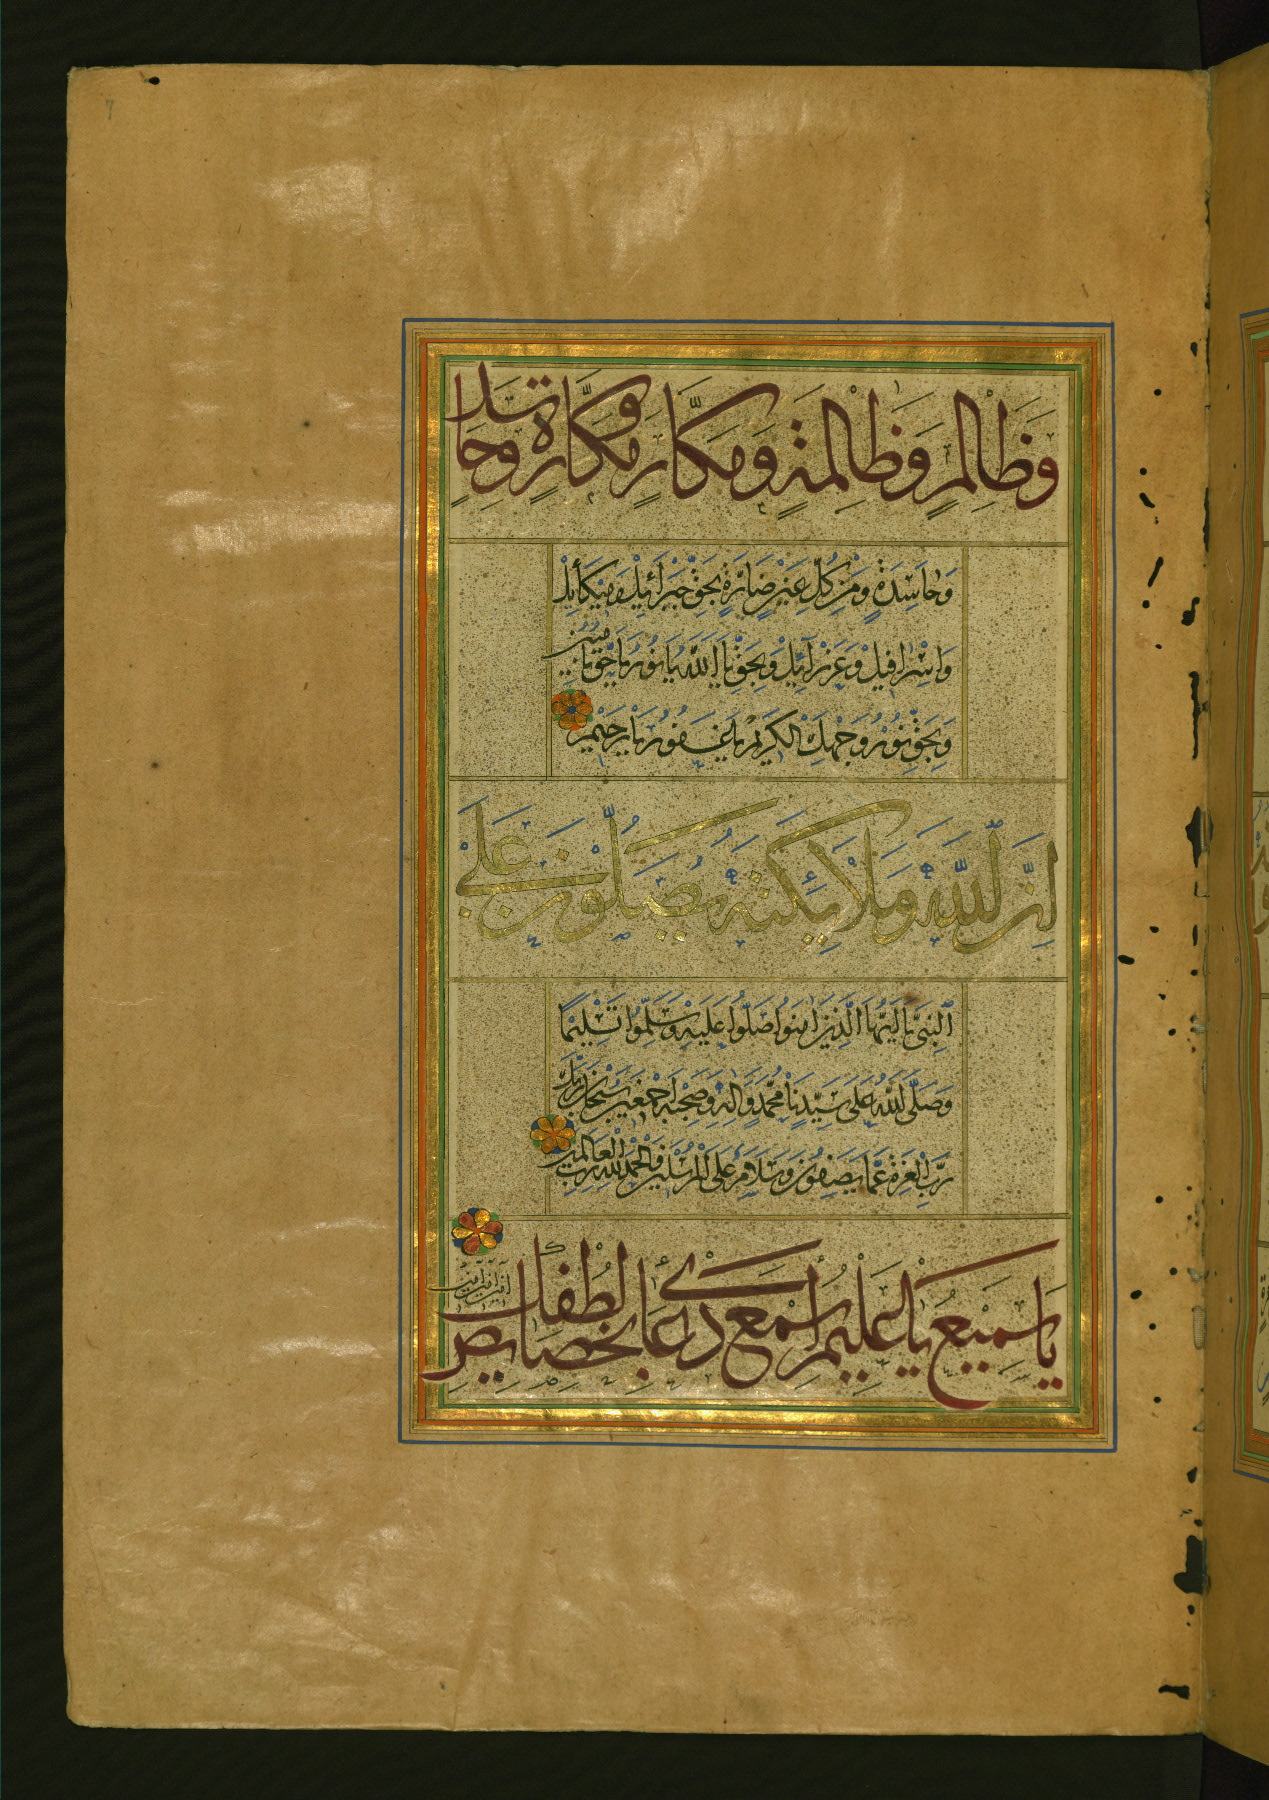 7
وَظَالِمٍ وَظَالِمَةٍ وَمَكَّارٍ وَمَكَّارَةٍ وَحَاسِدٍ
وَحَاسِدَةٍ وَمِنْ كُلِّ عَيْنٍ ضَارَّةٍ بِحَقِّ جَبْرَائِيلْ وَمِيكَائِيلْ
وَاِسْرَافِيلْ وَعَزْرَائِيلْ وَبِحَقِّ يَا اَللّٰهُ يَا نُورُ يَا حَقُّ يَا مُبِينُ
وَبِحَقِّ نُورِ وَجْهِكَ الْكَرِيمِ يَا غَفُورُ يَا رَحِيمُ
اِنَّ اللّٰهَ وَمَلَائِكَتَهُ يُصَلُّونَ عَلَى
النَّبِيِّ يَا اَيُّهَا الَّذِينَ اٰمَنُوا صَلُّوا عَلَيْهِ وَسَلِّمُوا تَسْلِيمًا
وَصَلَّى اللّٰهُ عَلَى سَيِّدِنَا مُحَمَّدٍ وَاٰلِهِ وَصَحْبِهِ اَجْمَعِينَ سُبْحَانَ رَبِّكَ
رَبِّ الْعِزَّةِ عَمَّا يَصِفُونَ وَسَلَامٌ عَلَى الْمُرْسَلِينَ وَالْحَمْدُ لِلّٰهِ رَبِّ الْعَالَمِينَ
يَا سَمِيعُ يَا عَلِيمُ اِسْمَعْ دُعَايَ بِخَصَائِصِ لُطْفِكَ
آمين آمين آمين